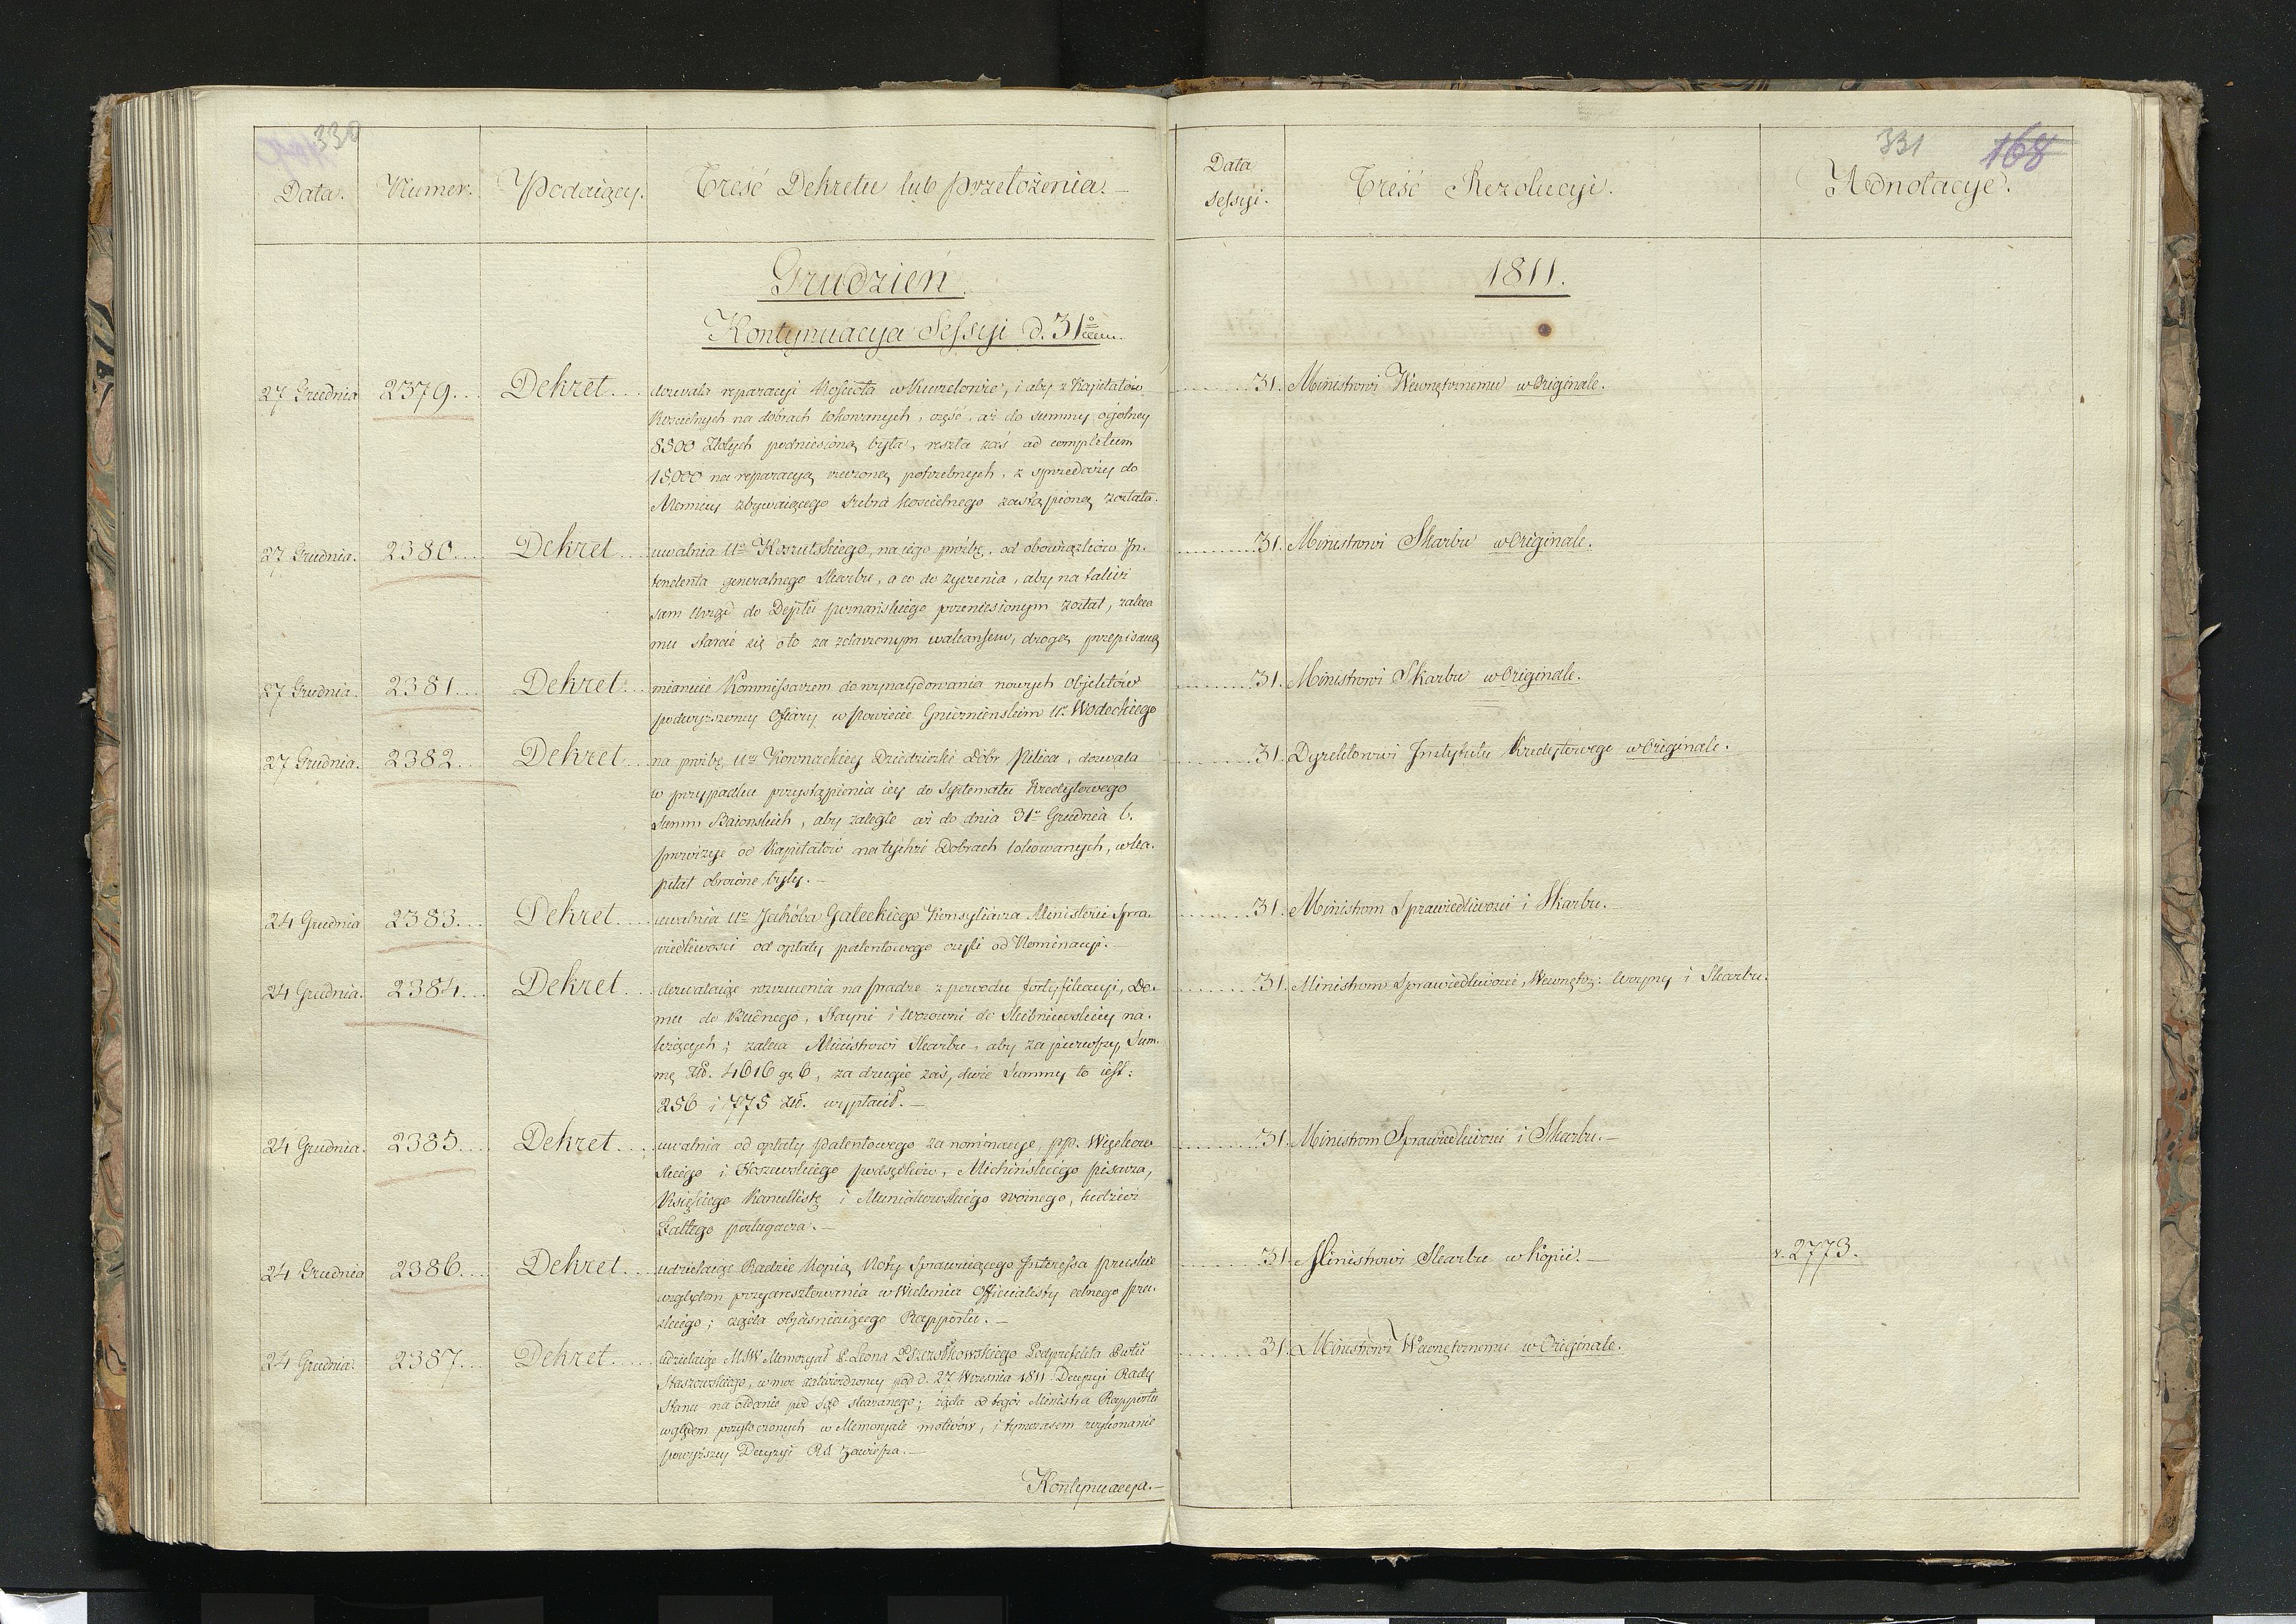 330
Data. Numer. Podaiący. Treść Dekretu lub przełożenia.
Grudzień.
Kontynuacya Sessyi d. 31º
27 Grudnia 2379... Dekret... dozwala reparacyi Kościoła w Kurzelowie, i aby z Kapitałów
Kościelnych na dobrach lokowanych, część, aż do summy ogólney
8300 Złotych podniesioną była, reszta zaś ad completum
15,000 na reparacyą rzeczoną potrzebnych, z sprzedaży do
Mennicy zbywaiącego srebra kościelnego zastąpioną została.
27 Grudnia. 2380.... Dekret... uwalnia Uo na iego prośbę, od obowiązków In.
tendenta generalnego Skarbu, a co do życzenia, aby na takiż
sam Urząd do Deptu poznańskiego przeniesionym został, zaleca
mu starać się o to za zdarzonym wakansem, drogą przepisaną
27 Grudnia. 2381... Dekret... mianuie Kommissarzem do wynaydowania nowych Objektów
podwyższoney Ofiary w Powiecie Gnieznienskim Ur. Wodeckiego
27 Grudnia. 2382... Dekret... na prośbę Ur Kownackiey Dziedziczki Dóbr Pilica, dozwala
w przypadku przystąpienia iey do Systematu Kredytowego
Summ Baionskich, aby zaległe aż do dnia 31o Grudnia b.
prowizye od Kapitałów na tychże Dobrach lokowanych, w ka.
pitał obrócone były.
24 Grudnia 2383... Dekret.... uwalnia Uo Jakóba Galeckiego Konsyliarza Ministerii Spra.
wiedliwości od opłaty patentowego czyli od Nominacyi.
24 Grudnia. 2384... Dekret.... dozwalaiąc rozrzucenia na Pradze z powodu fortyfikacyi, Do.
mu do Rudnego, Stayni i Wozowni do Skibniewskiey na.
leżących; zaleca Ministrowi Skarbu, aby za pierwszy Sum.
mę Złł. 4616 gr 6, za drugie zaś, dwie Summy to iest:
256 i 775 Złł. wypłacił.
24 Grudnia. 2385.... Dekret.... uwalnia od opłaty patentowego za nominacye, pp.
skiego i podsędków, Michińskiego pisarza,
Księskiego Kancellistę i Muniakowskiego woźnego, tudzież
24 Grudnia 2386.... Dekret... udzielaiąc Radzie Kopią Noty Sprawuiącego Interessa pruskie
względem przyaresztowania w Wieluniu Officialisty celnego pru.
skiego; żąda obiaśniaiącego Rapportu.
24 Grudnia. 2387... Dekret... udzielaiąc MSW Memoryał P. Leona Podprefekta Pwtu
Staszowskiego, w moc zatwierdzoney pod d. 27 Września 1811 Decyzyi Rady
Stanu na oddanie pod Sąd skazanego; żąda od tegoż Ministra Rapportu
względem przytoczonych w Memoryale motivów, i tymczasem wykonanie
powyższey Decyzyi RS zawiesza.
Kontynuacya.
331 168
Data Sessyi. Treść Rezolucyi. Adnotacye.
1811.
31. Ministrowi Wewnętrznemu w Originale.
31. Ministrowi Skarbu w Originale.
31. Ministrowi Skarbu w Originale.
31. Dyrektorowi Instytutu Kredytowego w Originale.
31. Ministrom Sprawiedliwości i Skarbu.
31. Ministrom Sprawiedliwości, Wewnętrz: Woyny i Skarbu.
31. Ministrom Sprawiedliwości i Skarbu.
31. Ministrowi Skarbu w kopii. v. 2773.
31. Ministrowi Wewnętrznemu w Originale.